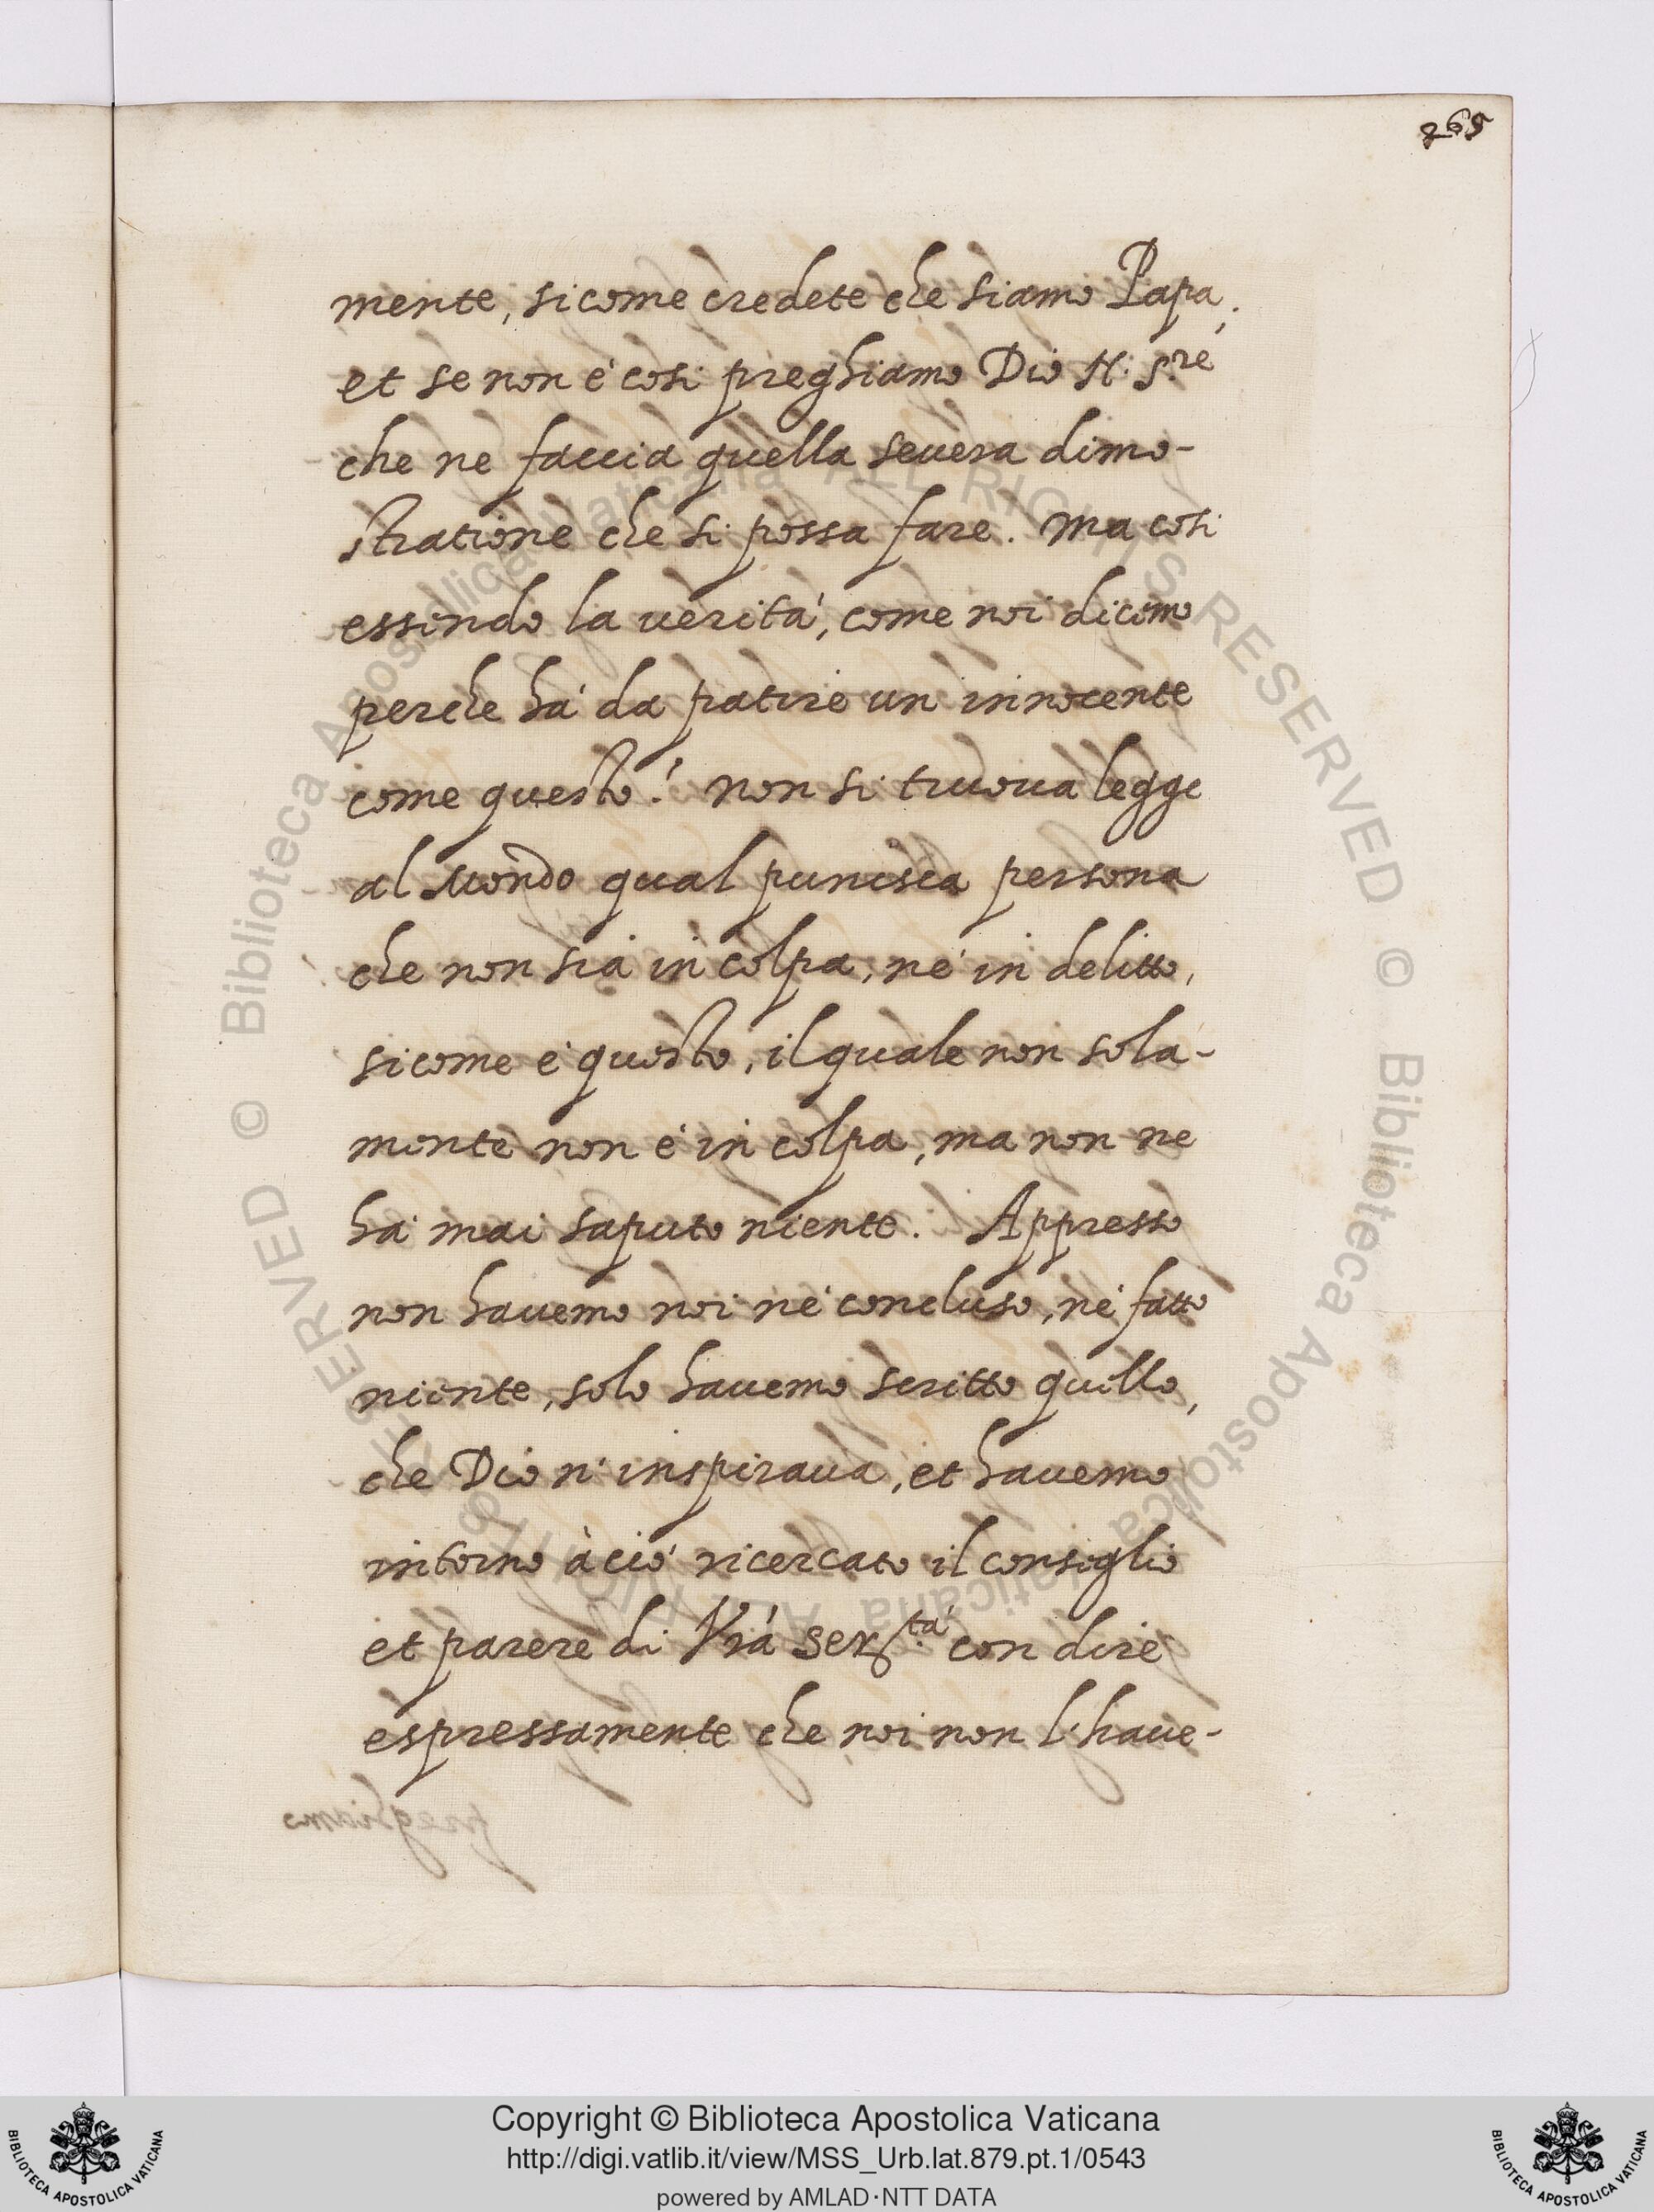 265
mente, sicome credete che siamo Papa;
et se non è così preghiamo Dio N. S.re
che ne faccia quella seuera dimo-
stratione che si possa fare. Ma così
essendo la uerità, come noi dicemo
perche hà da patire un innocente
come questo? non si truoua legge
al Mondo qual punisca persona
che non sia in colpa, nè in delitto,
sicome è questo, il quale non sola-
mente non è in colpa, ma non ne
hà mai saputo niente. Appresso
non hauemo noi nè concluso, nè fatto
niente, solo hauemo scritto quello,
che Dio n' inspiraua, et hauemo
intorno à ciò ricercato il consiglio
et parere di Vrà Ser.tà con dire
espressamente che noi non l'haue-
Copyright © Biblioteca Apostolica Vaticana
http://digi.vatlib.it/view/MSS_Urb.lat.879.pt.1/0543
powered by AMLAD·NTT DATA
BIBLIOTECA APOSTOLICA VATICANA
BIBLIOTECA APOSTOLICA VATICANA